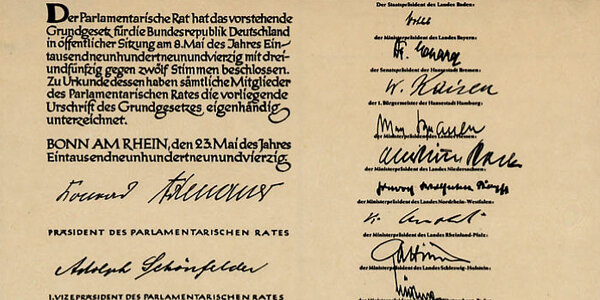 Der Parlamentarische Rat hat das vorstehende
Grundgesetz für die Bundesrepublik Deutschland
in öffentlicher Sitzung am 8. Mai des Jahres Ein-
tausendneunhundertneunundvierzig mit drei-
undfünfzig gegen zwölf Stimmen beschlossen.
Zu Urkunde dessen haben sämtliche Mitglieder
des Parlamentarischen Rats die vorliegende
Urschrift des Grundgesetzes eigenhändig
unterzeichnet.
BONN AM RHEIN, den 23. Mai des Jahres
Eintausendneunhundertneunundvierzig.
Konrad Adenauer
PRÄSIDENT DES PARLAMENTARISCHEN RATES
Adolph Schönfelder
I. VIZEPRÄSIDENT DES PARLAMENTARISCHEN RATES
Der Staatspräsident des Landes Baden:
der Ministerpräsident des Landes Bayern:
der Senatspräsident der Hansestadt Bremen:
W. Kaisen
der 1. Bürgermeister der Hansestadt Hamburg:
Max Brauer
der Ministerpräsident des Landes Hessen:
der Ministerpräsident des Landes Niedersachsen:
der Ministerpräsident des Landes Nordrhein-Westfalen:
der Ministerpräsident des Landes Rheinland-Pfalz:
der Ministerpräsident des Landes Schleswig-Holstein: